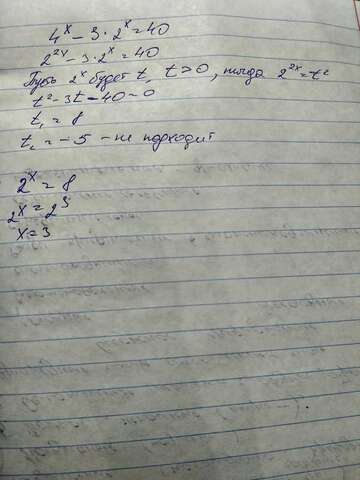 4ˣ - 3 · 2ˣ = 40
2²ˣ - 3 · 2ˣ = 40
Пусть 2ˣ будет t, t > 0, тогда 2²ˣ = t²
t² - 3t - 40 = 0
t₁ = 8
t₂ = -5 - не подходит
2ˣ = 8
2ˣ = 2³
x = 3